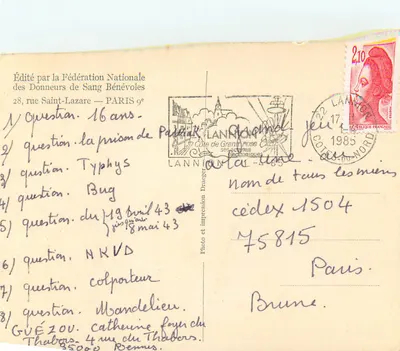 Édité par la Fédération Nationale
des Donneurs de Sang Bénévoles
28, rue Saint-Lazare — PARIS 9e
1) question. 16 ans.
2) question. la prison de
3) question. Typhys
4) question. Bug
5) question. du 19 Avril 43
jusqu'au 8 mai 43
6) question. NKVD
7) question. colporteur
8) question. Mandelieu.
GUÉZOU. catherine foyer du
Thabors. 4 rue du Thabors.
35000 Rennes.
Photo et impression
LANNION
Côte de Granit rose
LANNION
22 LANNION
17
1985
COTES-DU-NORD
2,10
Grand jeu
à la une
nom de tous les miens
cédex 1504
75815
Paris.
Brune.